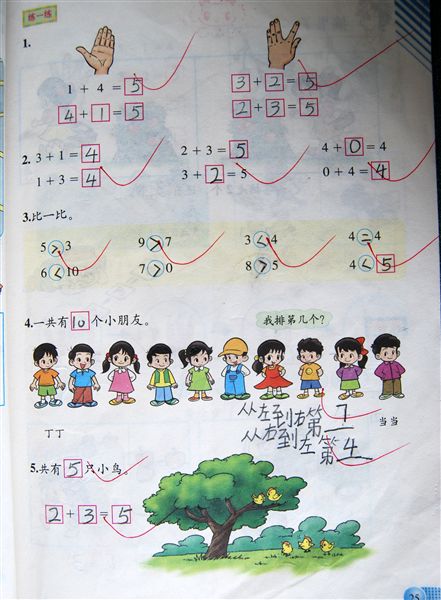 练一练
1.
1 + 4 = 5
3 + 2 = 5
4 + 1 = 5
2 + 3 = 5
2. 3 + 1 = 4
2 + 3 = 5
4 + 0 = 4
1 + 3 = 4
3 + 2 = 5
0 + 4 = 4
3. 比一比。
5 > 3
9 > 7
3 < 4
4 = 4
6 < 10
7 > 0
8 > 5
4 < 5
4. 一共有 10 个小朋友。
我排第几个?
从左到右第 7
丁丁
当当
从右到左第 4
5. 共有 5 只小鸟。
2 + 3 = 5
25